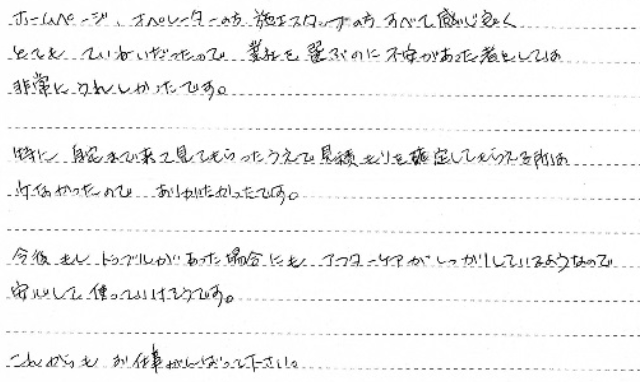 ホームページ、オペレーターの方 施工スタッフの方 すべて感じ良く
とても ていねいだったので 業社を 選ぶのに 不安があった者としては
非常に うれしかったです。
特に 自宅まで来て見てもらったうえで 見積もりを確定してもらえる所は
少なかったので ありがたかったです。
今後 もし トラブルがあった場合にも アフターケアがしっかりしているようなので
安心して 使っていけそうです。
これからも お仕事がんばって下さい。